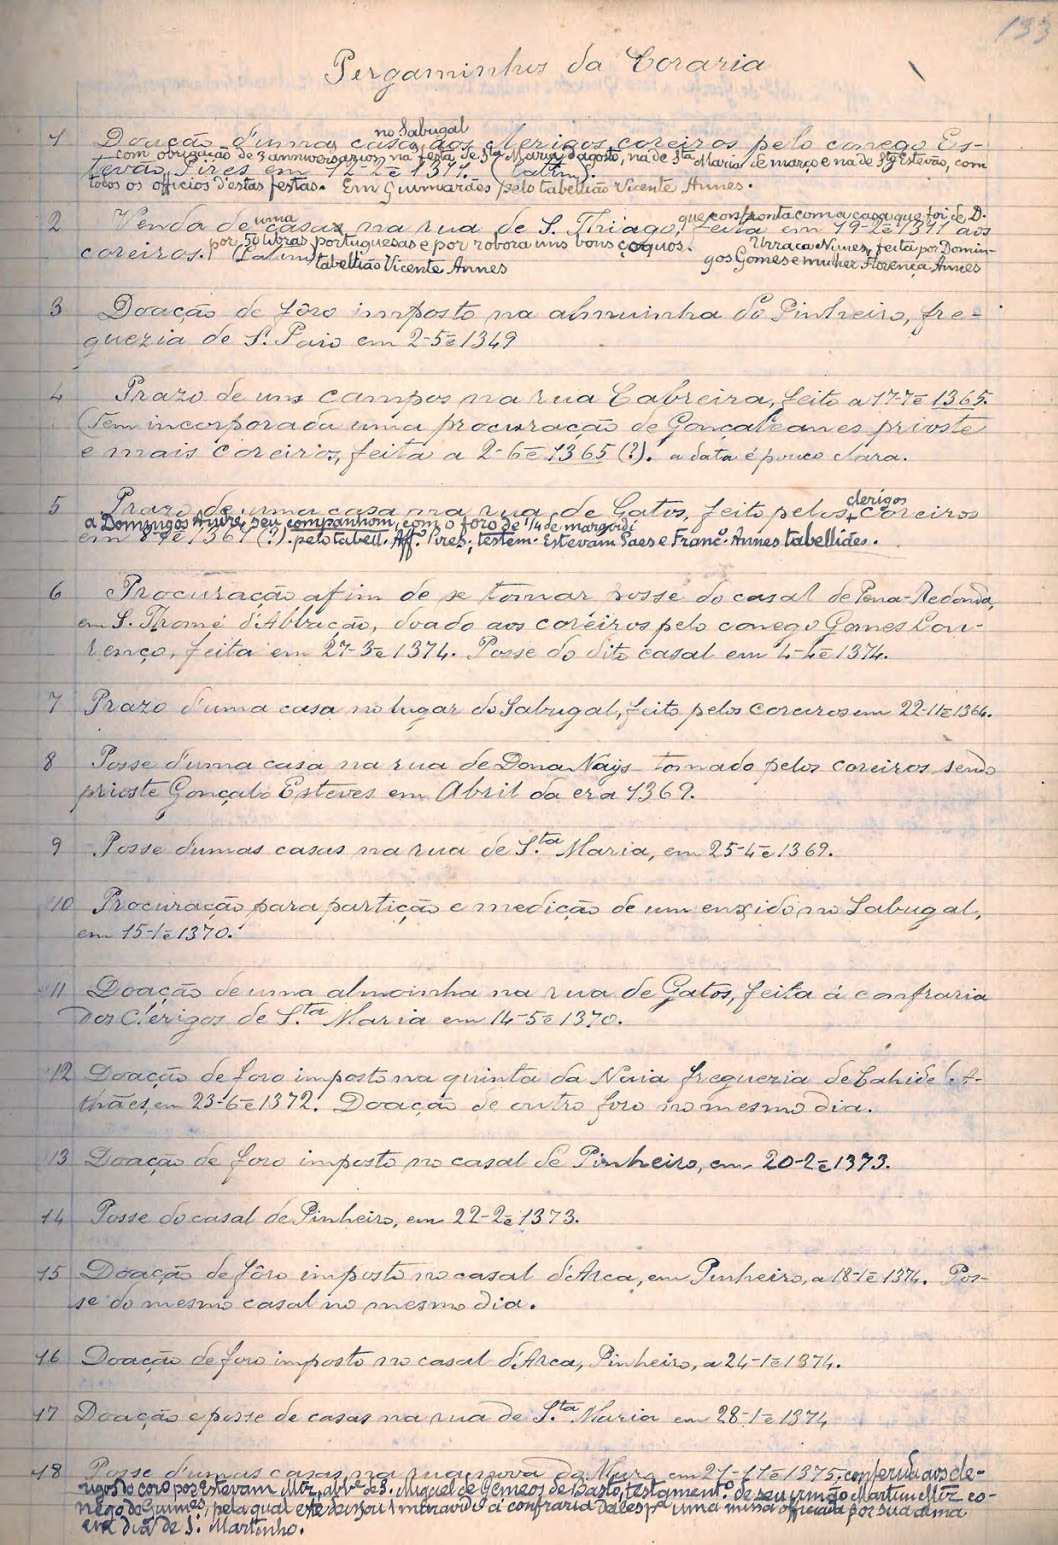 133
Pergaminhos da Coraria
no Sabugal
1 Doação d'uma casa aos clerigos coreiros pelo conego Es-
com obrigação de 3 anniversarios na festa de Sta Maria d'agosto, na de Sta Maria de março e na de Sto Estevão, com
tevão Pires em 12-2-ē 1371. (Latim).
todos os officios d'estas festas. Em Guimarães pelo tabellião Vicente Annes.
uma que confronta com a casa que foi de D.
2 Venda de casas na rua de S. Thiago, feita em 19-2-ē 1371 aos
por 50 libras portuguesas e por robora uns bons çoquos. Urraca Nunes, feita por Domin-
coreiros. (Latim) tabellião Vicente Annes gos Gomes e mulher Florença Annes
3 Doação de fôro imposto na almuinha do Pinheiro, fre-
guezia de S. Paio em 2-5-ē 1349
4 Prazo de uns campos na rua Cabreira, feito a 17-7-ē 1365.
(Tem incorporada uma procuração de Gonçaleanes prioste
e mais coreiros, feita a 2-6-ē 1365 (?). a data é pouco clara.
clerigos
5 Prazo de uma casa na rua de Gatos, feito pelos + coreiros
a Domingos Andre, seu companhom, com o foro de 1/4 de maravidi
em 8-7-ē 1367 (?). pelo tabell. Aff.º Pires; testem. Estevam Paes e Franc.º Annes tabelliães.
6 Procuração afim de se tomar posse do casal de Pena-Redonda,
em S. Thomé d'Abbação, doado aos coreiros pelo conego Gomes Lou-
renço, feita em 27-3-ē 1374. Posse do dito casal em 4-4-ē 1374.
7 Prazo d'uma casa no lugar do Sabugal, feito pelos coreiros em 22-11-ē 1364.
8 Posse d'uma casa na rua de Dona Nays tomado pelos coreiros sendo
prioste Gonçalo Esteves em Abril da era 1369.
9 Posse dumas casas na rua de S.ta Maria, em 25-4-ē 1369.
10 Procuração para partição e medição de um enxido no Sabugal,
em 15-1-ē 1370.
11 Doação de uma almoinha na rua de Gatos, feita á confraria
dos Clerigos de S.ta Maria em 14-5-ē 1370.
12 Doação de foro imposto na quinta da Naia freguezia de Cahide (. A-
thães, em 23-6-ē 1372. Doação de outro foro no mesmo dia.
13 Doação de foro imposto no casal de Pinheiro, em 20-2-ē 1373.
14 Posse do casal de Pinheiro, em 22-2-ē 1373.
15 Doação de fôro imposto no casal d'Arca, em Pinheiro, a 18-1-ē 1374. Pos-
se do mesmo casal no mesmo dia.
16 Doação de foro imposto no casal d'Arca, Pinheiro, a 24-1-ē 1374.
17 Doação e posse de casas na rua de S.ta Maria em 28-1-ē 1374
18 Posse d'umas casas na rua nova do Muro em 27-11-ē 1375, conferida aos cle-
rigos do coro por Estevam Miz, abb.e de S. Miguel de Gemeos de Basto, testament.º de seu irmão Martim Miz co-
nego de Guim.es, pela qual este deixou 1 maravidi á confraria deles p.ª uma missa officiada por sua alma
em dia de S. Martinho.